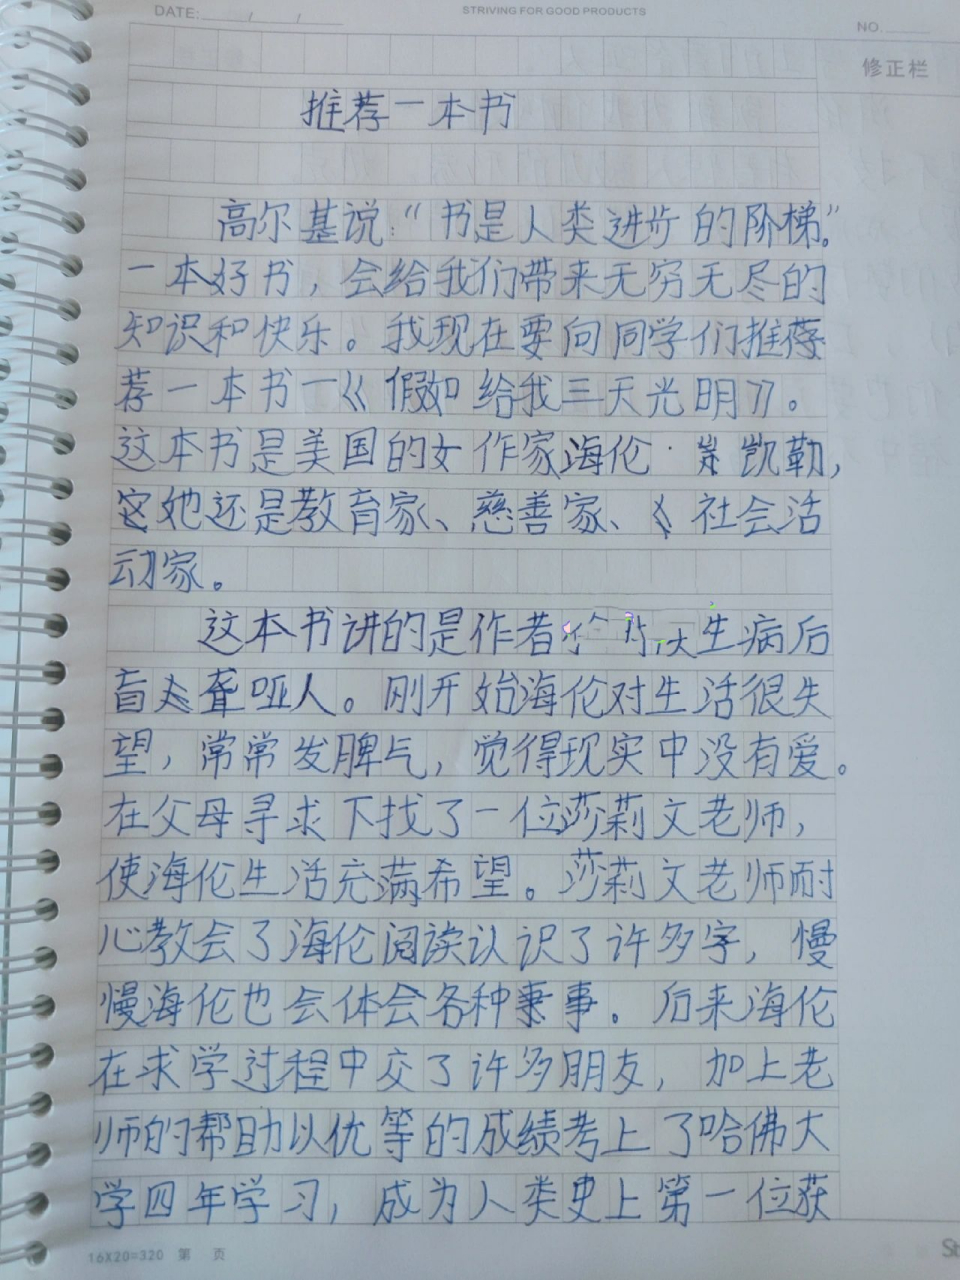 DATE: / /
STRIVING FOR GOOD PRODUCTS
NO.
修正栏
推荐一本书
高尔基说:“书是人类进步的阶梯。”
一本好书，会给我们带来无穷无尽的
知识和快乐。我现在要向同学们推荐
荐一本书一《假如给我三天光明》。
这本书是美国的女作家海伦·凯勒，
她还是教育家、慈善家、社会活
动家。
这本书讲的是作者生病后
盲聋哑人。刚开始海伦对生活很失
望，常常发脾气，觉得现实中没有爱。
在父母寻求下找了一位莎莉文老师，
使海伦生活充满希望。莎莉文老师耐
心教会了海伦阅读认识了许多字，慢
慢海伦也会体会各种事。后来海伦
在求学过程中交了许多朋友，加上老
师的帮助以优等的成绩考上了哈佛大
学四年学习，成为人类史上第一位获
16X20=320 第 页
St